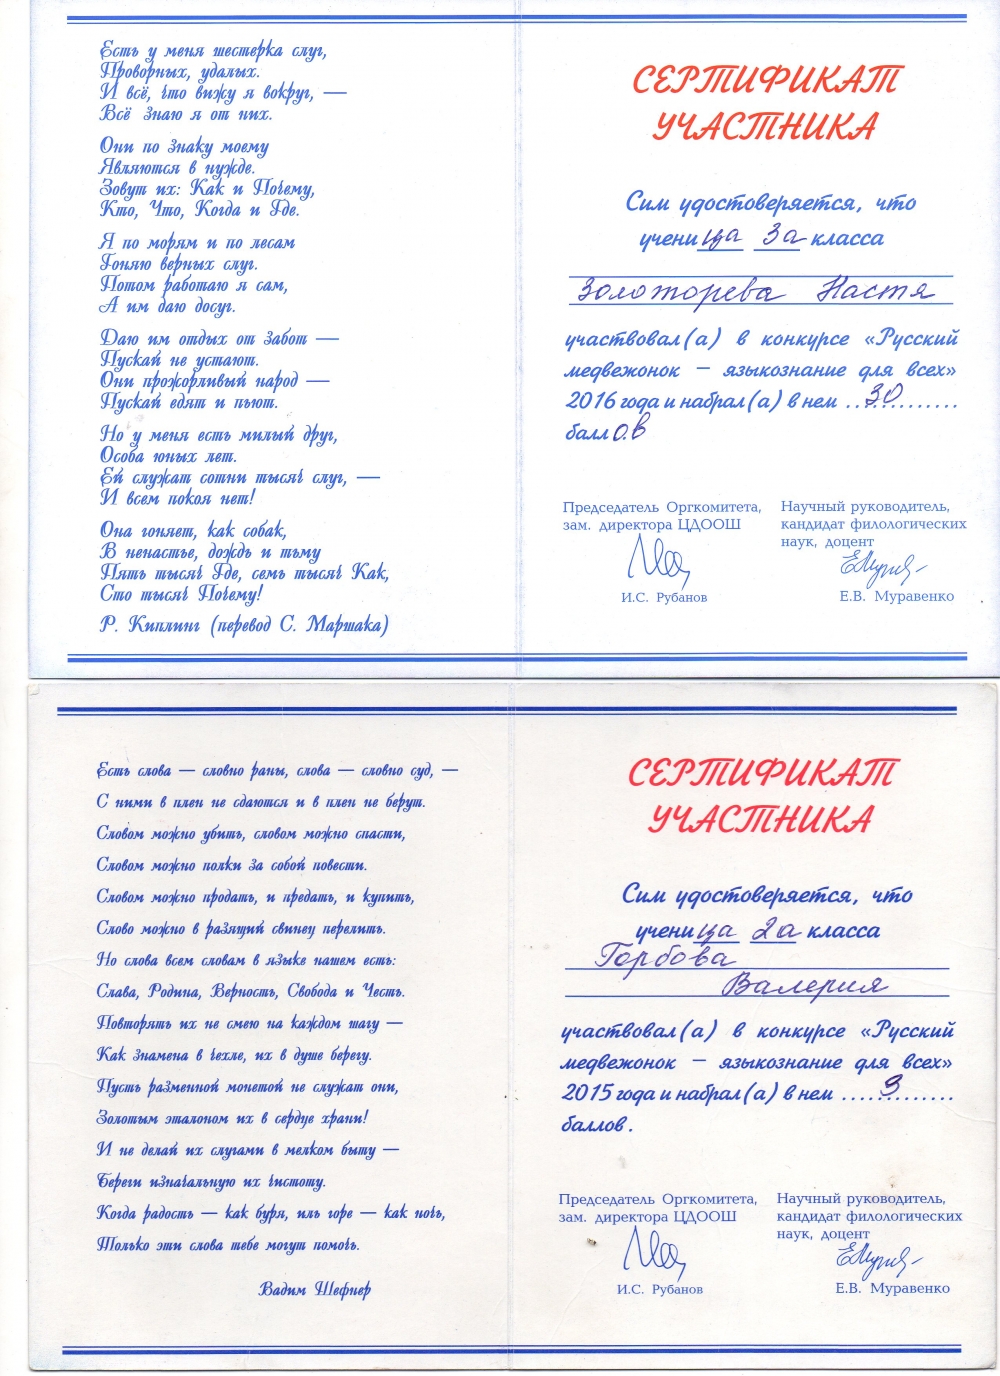 Есть у меня шестерка слуг,
Проворных, удалых.
И всё, что вижу я вокруг, —
Всё знаю я от них.
Они по знаку моему
Являются в нужде.
Зовут их: Как и Почему,
Кто, Что, Когда и Где.
Я по морям и по лесам
Гоняю верных слуг.
Потом работаю я сам,
А им даю досуг.
Даю им отдых от забот —
Пускай не устают.
Они прожорливый народ —
Пускай едят и пьют.
Но у меня есть милый друг,
Особа юных лет.
Ей служат сотни тысяч слуг, —
И всем покоя нет!
Она гоняет, как собак,
В ненастье, дождь и тьму
Пять тысяч Где, семь тысяч Как,
Сто тысяч Почему!
Р. Киплинг (перевод С. Маршака)
СЕРТИФИКАТ
УЧАСТНИКА
Сим удостоверяется, что
ученица 3а класса
Золоторева Настя
участвовал(а) в конкурсе «Русский
медвежонок – языкознание для всех»
2016 года и набрал(а) в нем ...30.........
баллов
Председатель Оргкомитета,
зам. директора ЦДООШ
И.С. Рубанов
Научный руководитель,
кандидат филологических
наук, доцент
Е.В. Муравенко
Есть слова — словно раны, слова — словно суд, —
С ними в плен не сдаются и в плен не берут.
Словом можно убить, словом можно спасти,
Словом можно полки за собой повести.
Словом можно продать, и предать, и купить,
Слово можно в разящий свинец перелить.
Но слова всем словам в языке нашем есть:
Слава, Родина, Верность, Свобода и Честь.
Повторять их не смею на каждом шагу —
Как знамена в чехле, их в душе берегу.
Пусть разменной монетой не служат они,
Золотым эталоном их в сердце храни!
И не делай их слугами в мелком быту —
Береги изначальную их чистоту.
Когда радость — как буря, иль горе — как ночь,
Только эти слова тебе могут помочь.
Вадим Шефнер
СЕРТИФИКАТ
УЧАСТНИКА
Сим удостоверяется, что
ученица 2а класса
Горбова
Валерия
участвовал(а) в конкурсе «Русский
медвежонок – языкознание для всех»
2015 года и набрал(а) в нем .............
баллов.
Председатель Оргкомитета,
зам. директора ЦДООШ
И.С. Рубанов
Научный руководитель,
кандидат филологических
наук, доцент
Е.В. Муравенко